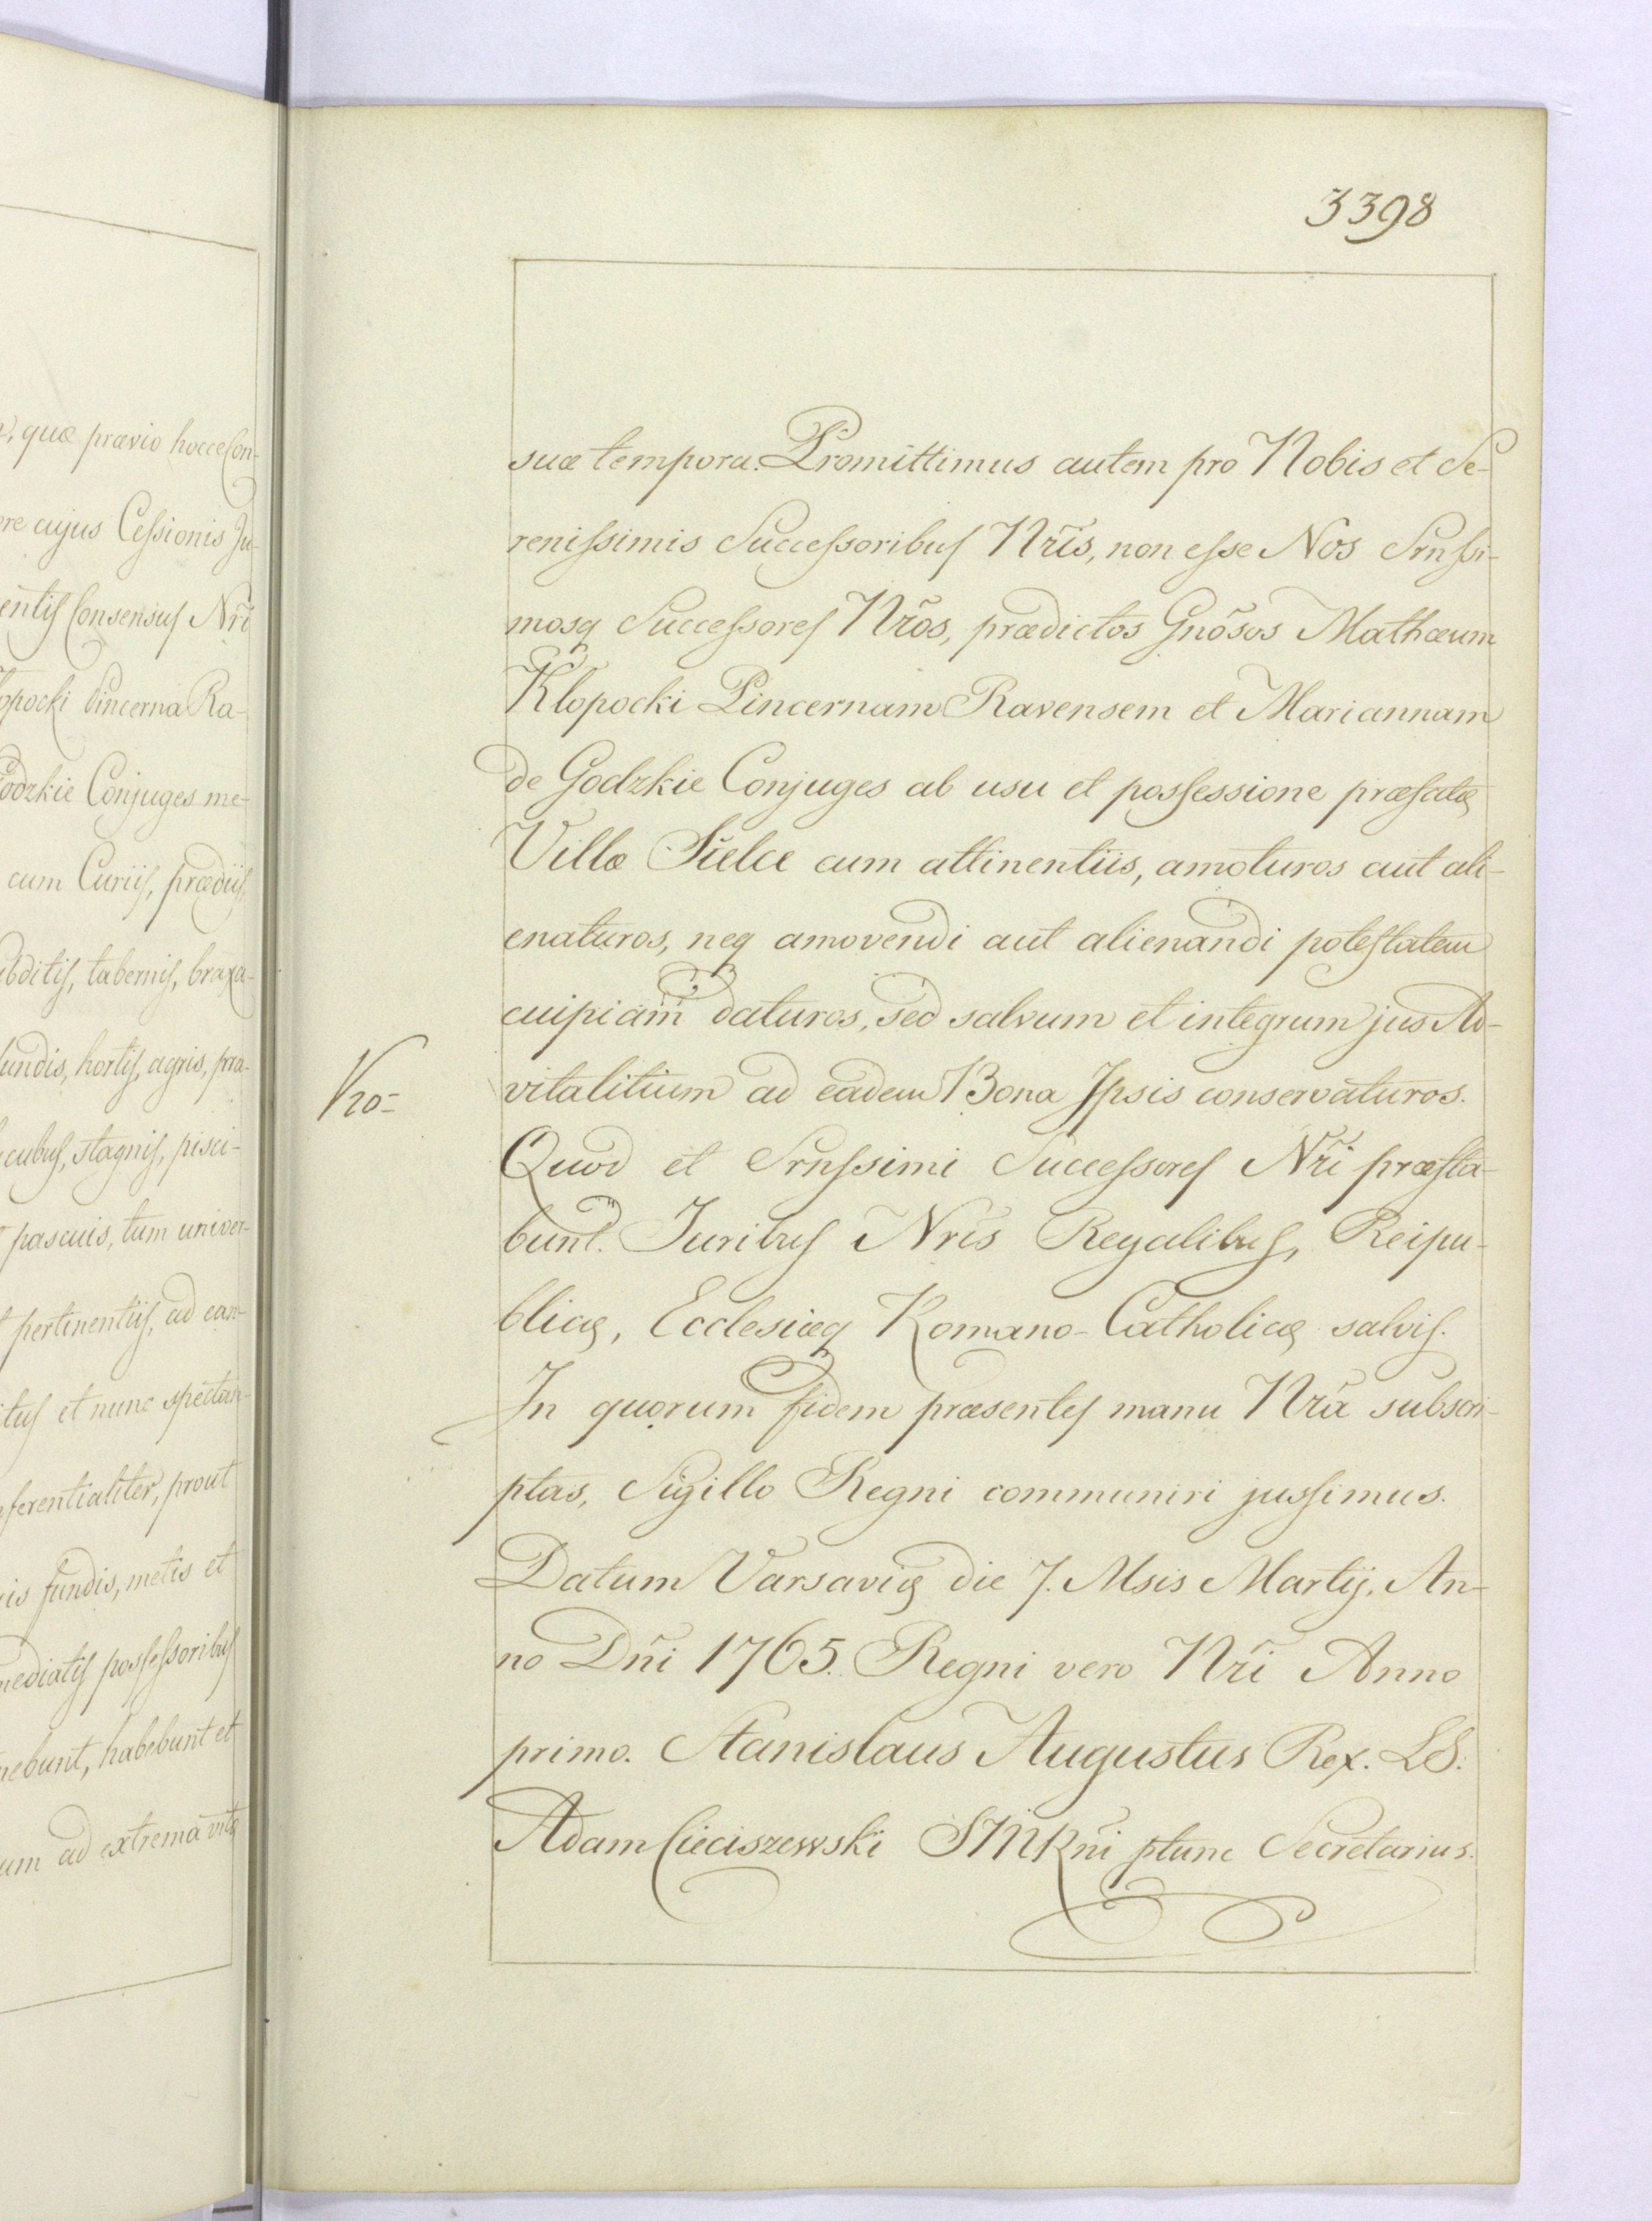 3398
suæ tempora. Promittimus autem pro Nobis et Se-
renissimis Successoribus Nr̃is, non esse Nos Srnssi-
mosq Successores Nr̃os, prædictos Gnõsos Mathæum
Klopocki Pincernam Ravensem et Mariannam
de Godzkie Conjuges ab usu et possessione præfatæ
Villæ Sielce cum attinentiis, amoturos aut ali-
enaturos, neq amovendi aut alienandi potestatem
cuipiam daturos, sed salvum et integrum jus Ad-
vitalitium ad eadem Bona Ipsis conservaturos.
Vro=
Quod et Srnssimi Successores Nr̃i præsta-
bunt. Juribus Nris Regalibus, Reipu-
blicæ, Ecclesiæq Romano-Catholicæ salvis.
In quorum fidem præsentes manu Nr̃a subscri-
ptas, Sigillo Regni communiri jussimus.
Datum Varsaviæ die 7. Msis Martij, An-
no Dñi 1765. Regni vero Nr̃i Anno
primo. Stanislaus Augustus Rex. LS.
Adam Cieciszewski SMRñi ptunc Secretarius.
, quæ prævio hocce Con-
re cujus Cessionis Ju-
entis Consensus Nr̃i
opocki Pincerna Ra-
odzkie Conjuges me-
cum Curiis, prædiis,
bditis, tabernis, braxa-
undis, hortis, agris, pra-
cubus, stagnis, pisci-
pascuis, tum univer-
pertinentiis, ad ean-
itus et nunc spectan-
ferentialiter, prout
is fundis, metis et
mediatis possessoribus
nebunt, habebunt et
um ad extrema vitæ